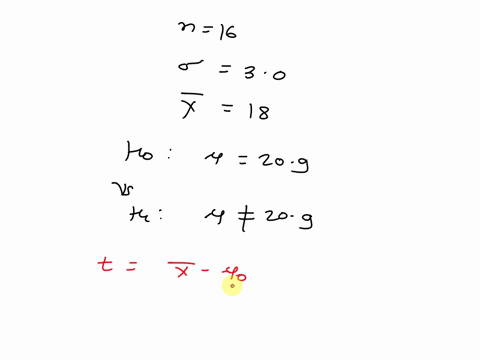 n = 16
σ = 3.0
x̅ = 18
H₀ : μ = 20.9
Vs
H₁ : μ ≠ 20.9
t = x̅ - μ₀